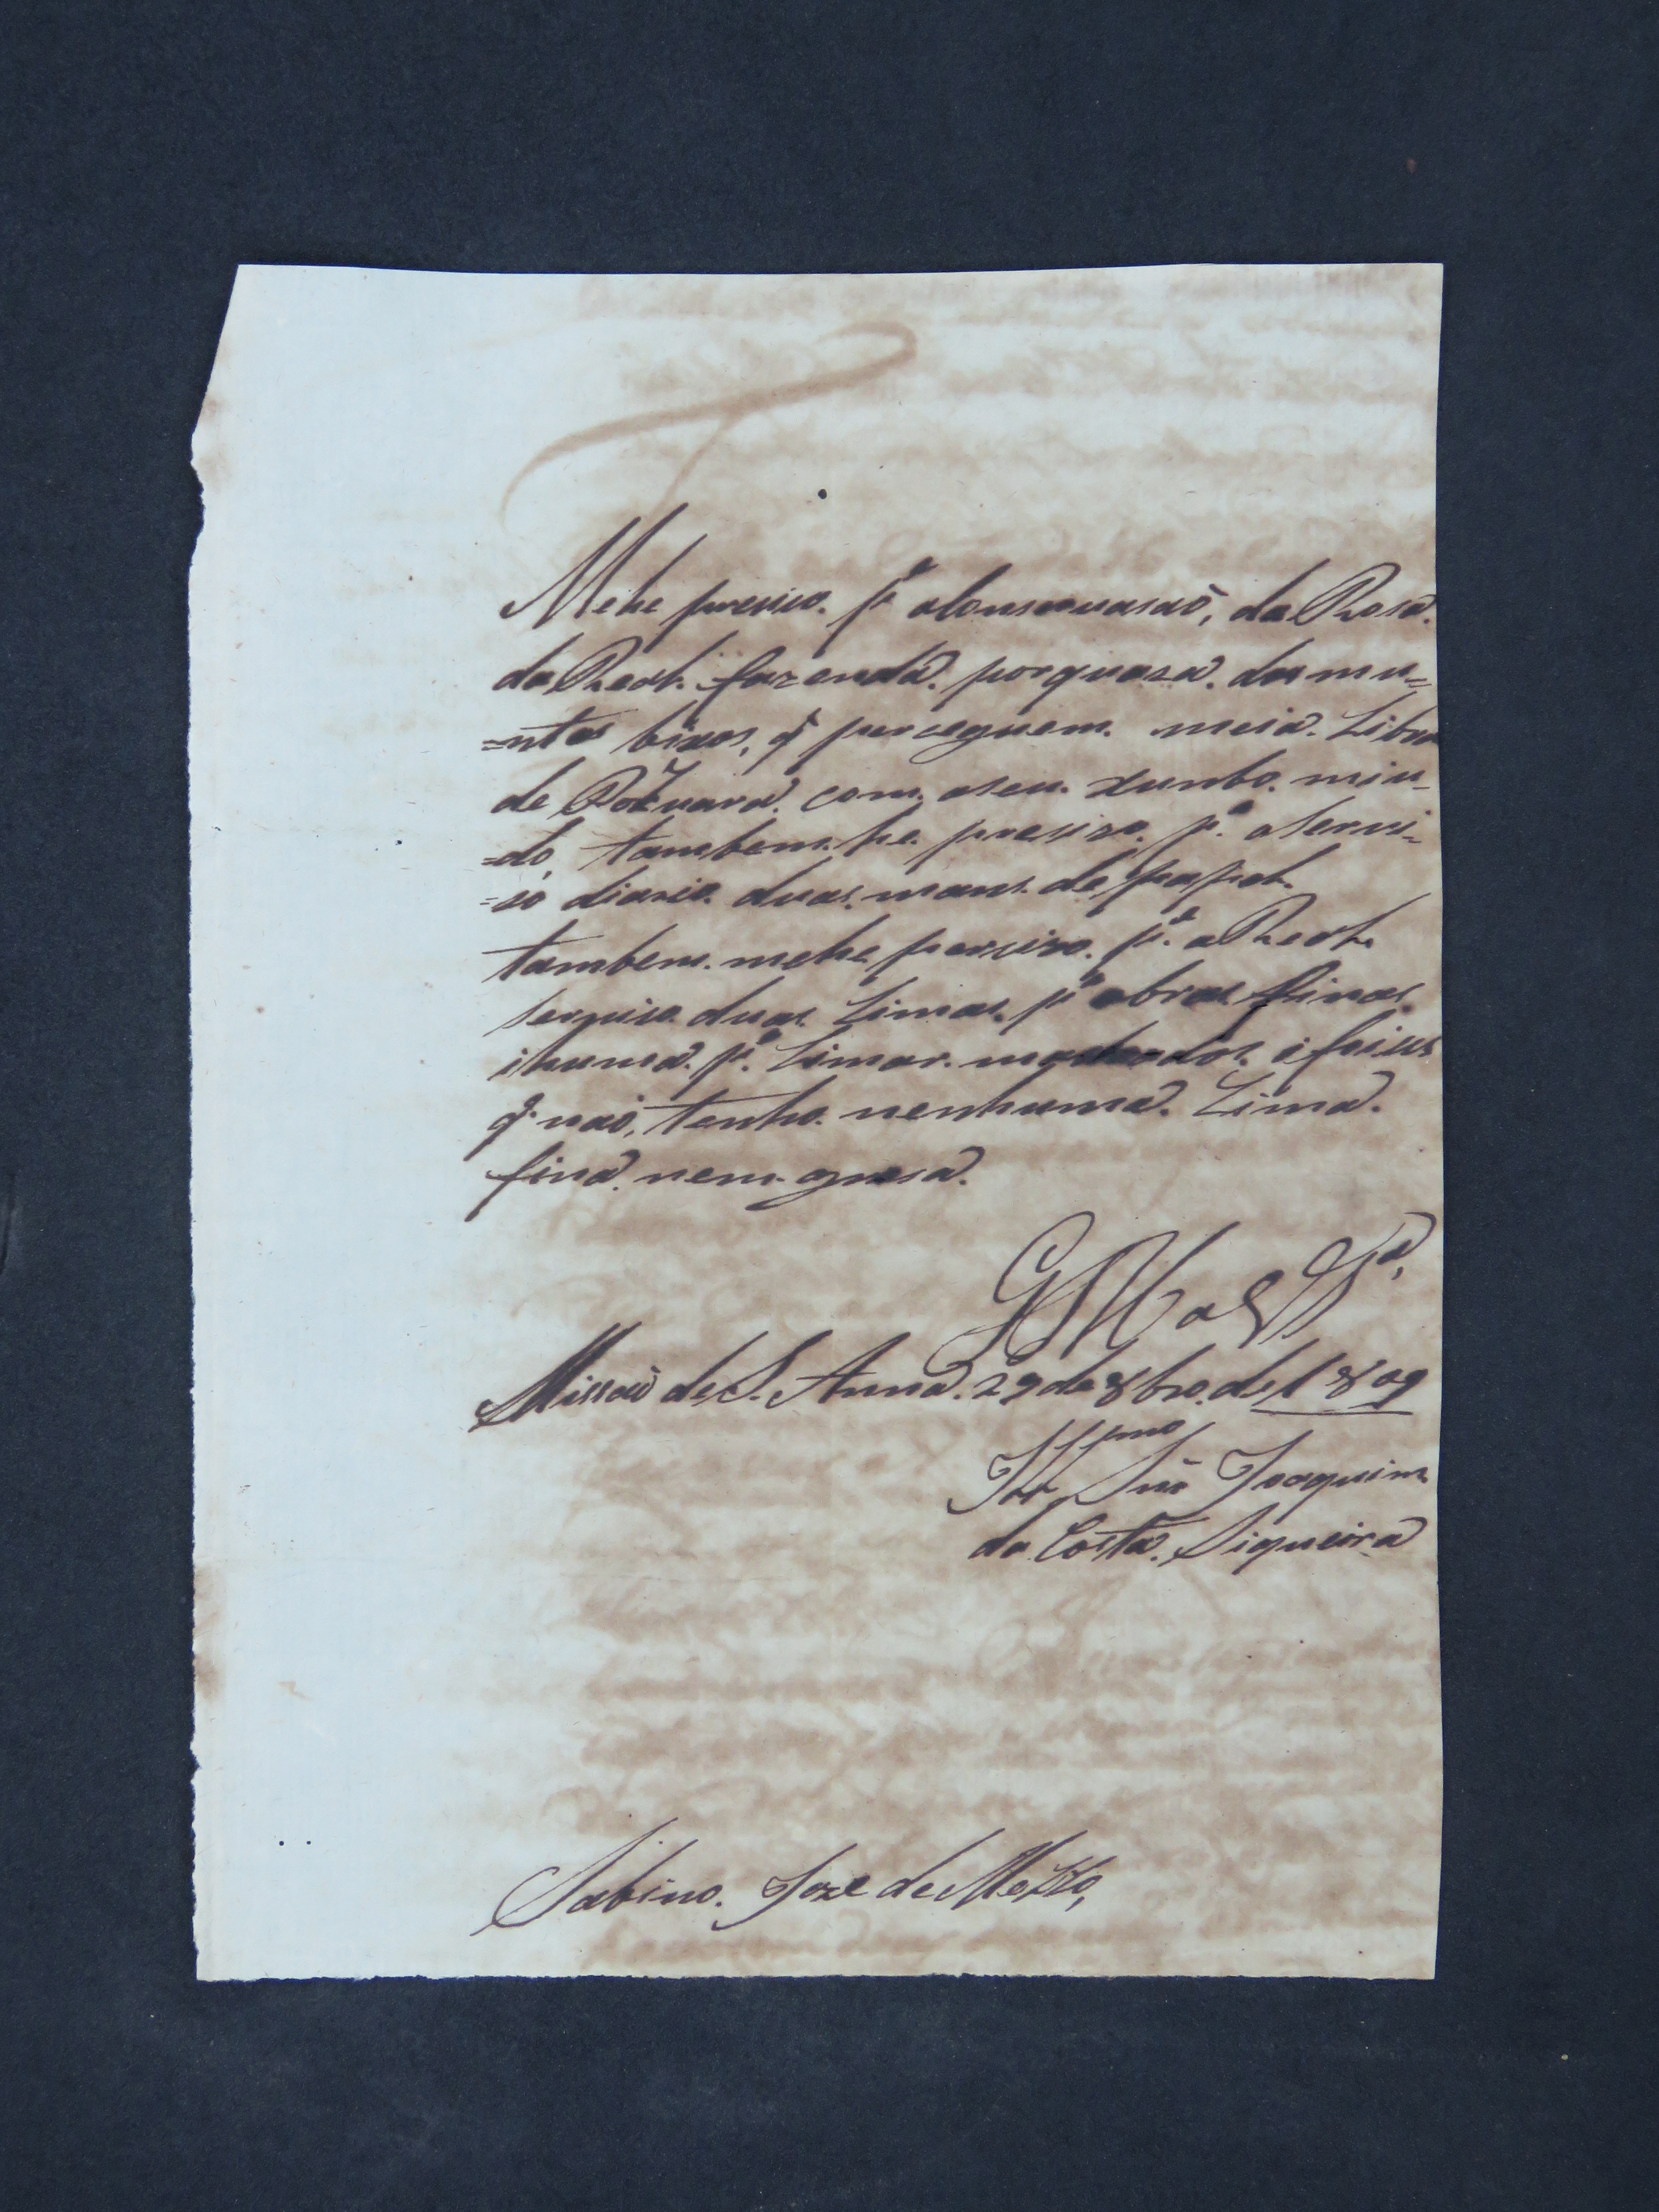 Mehe presiso. pª aconservasaõ, da Rosa.
da Real. fazenda. por quaza. dos mu=
=ntos bixos, q̃ perceguem. meia. Libra
de Polvara. com. oseu. xunbo. miu-
=do, tambem. he. presizo. pª. oservi=
=so diario. duas. maons. de papel.
tambem. mehe presizo. pª. a Real.
serviso. duas. Limas. pª obras finas.
ihuma. pª. Limar. machados. i foises
q̃. naõ, tenho. nenhuma. Lima.
fina. nem. grosa.
G. Mᵉ a VSª,
Missaõ de S. Anna. 29 de 8bro. de 1809
Illmo
Snr̃ Joaquim
da Costa. Siqueira
Sabino. Joze de Mello,